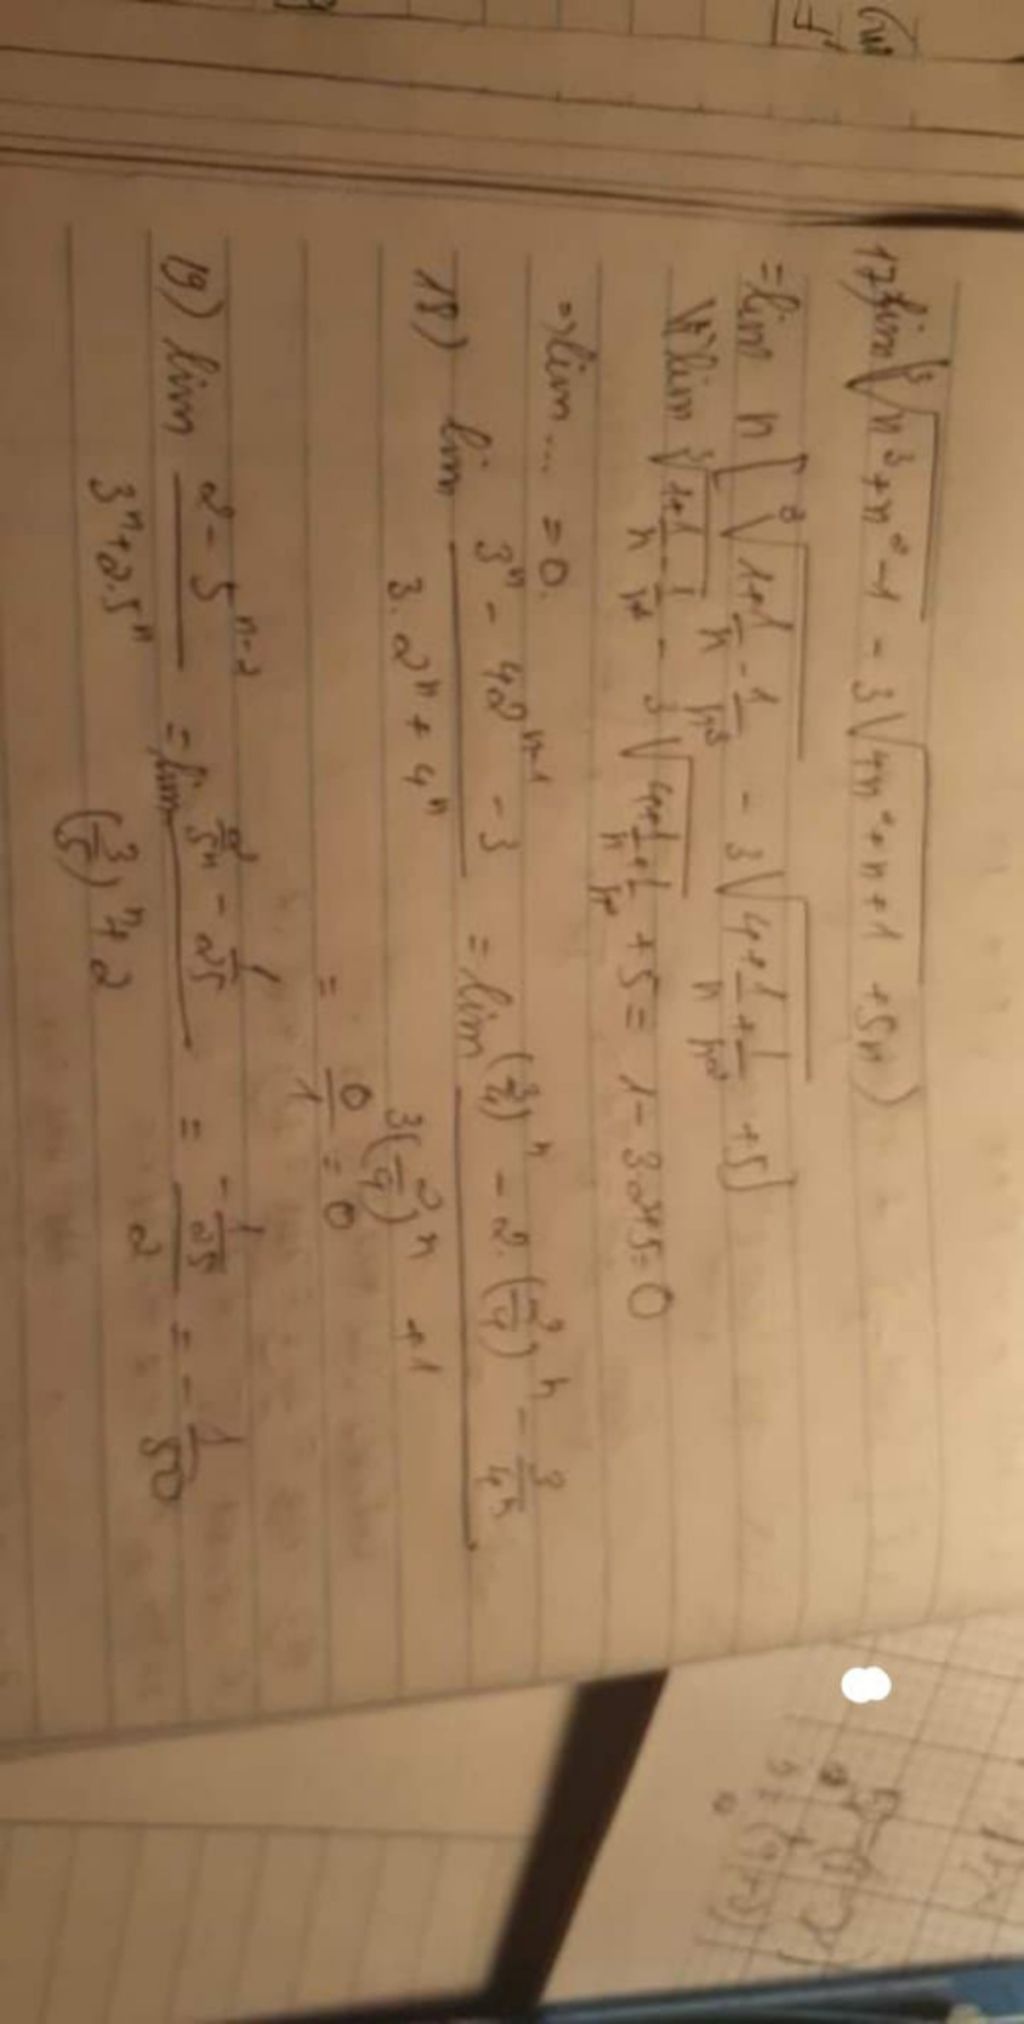 17) lim (∛(n³+n²-1) - 3√(4n²+n+1) +5n)
= lim n [∛(1+1/n - 1/n³) - 3√(4+1/n+1/n²) +5]
Vì lim ∛(1+1/n - 1/n³) - 3√(4+1/n+1/n²) +5 = 1-3.2+5=0
=> lim ... = 0.
18) lim (3ⁿ - 4.2ⁿ⁻¹ - 3)/(3.2ⁿ + 4ⁿ) = lim ((3/4)ⁿ - 2.(2/4)ⁿ - 3/4ⁿ)/(3(2/4)ⁿ + 1)
= 0/1 = 0
19) lim (2 - 5ⁿ⁻²)/(3ⁿ+2.5ⁿ) = lim (2/5ⁿ - 1/25)/((3/5)ⁿ + 2) = (-1/25)/2 = - 1/50